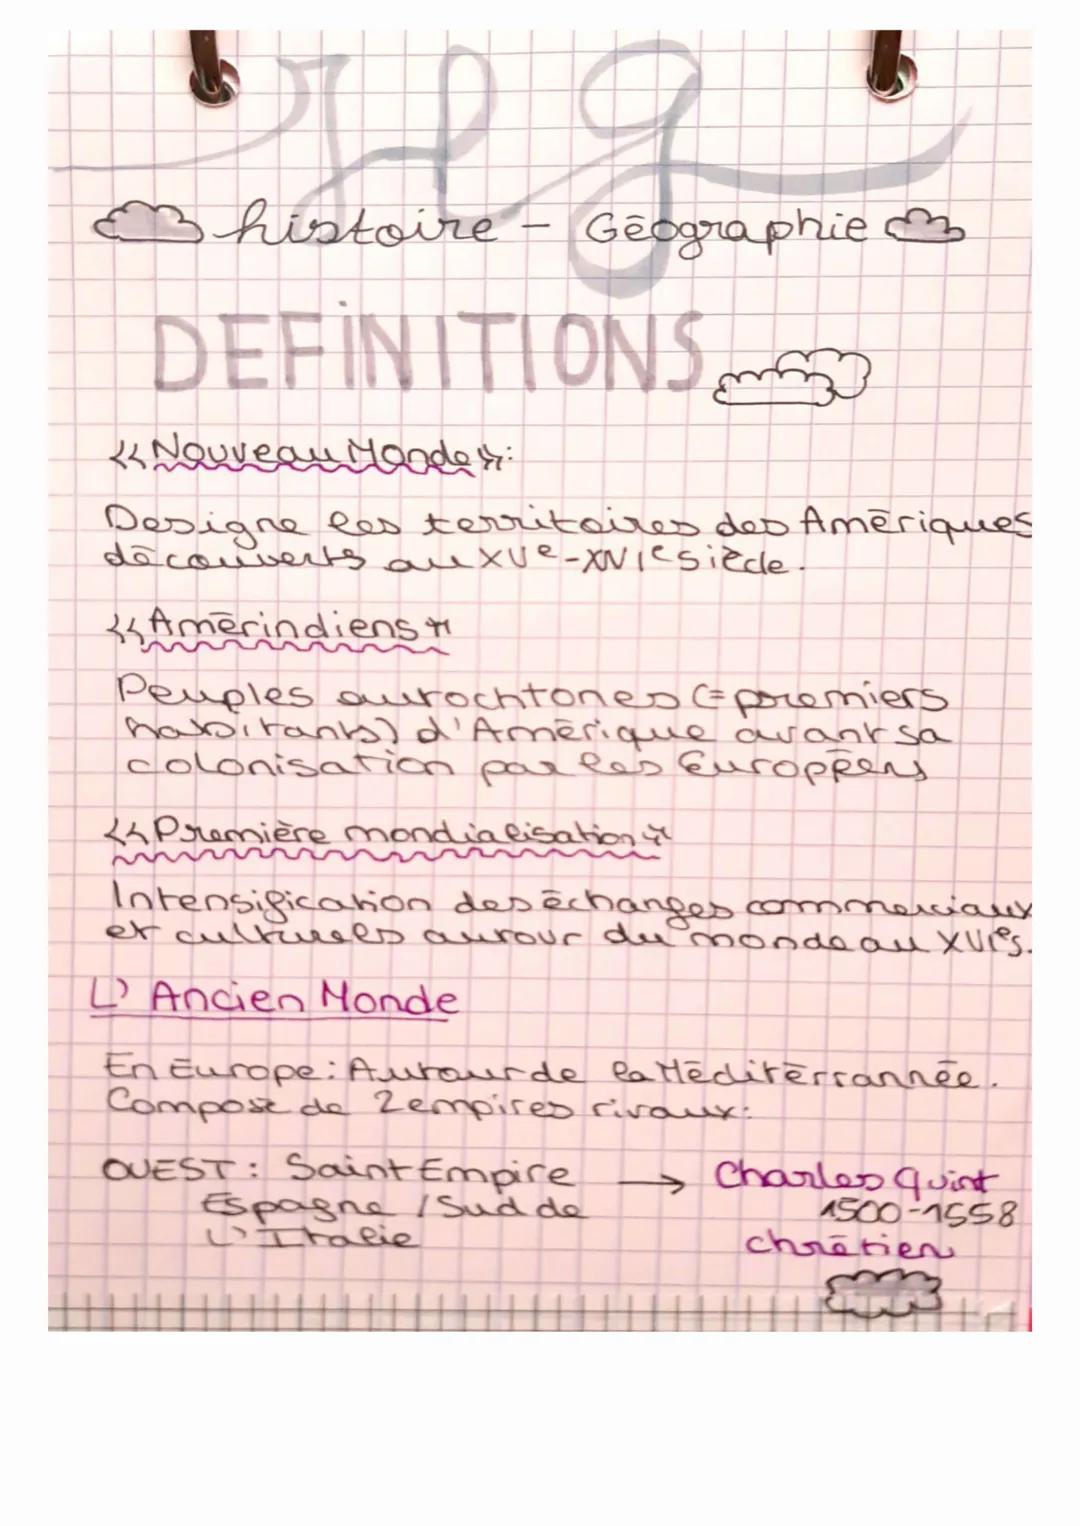 Hg
histoire - Géographie
DEFINITIONS
«Nouveau Monde»:
Designe les territoires des Amériques
découverts au XVe-XVIe siècle.
«Amérindiens»
Peuples autochtones (=premiers
habitants) d'Amérique avant sa
colonisation par les Européens
«Première mondialisation»
Intensification des échanges commerciaux
et culturels autour du monde au XVIes.
L'Ancien Monde
En Europe: Autour de la Méditérrannée.
Compose de 2 empires rivaux:
OUEST: Saint Empire → Charles Quint
Espagne / Sud de 1500-1558
L'Italie chrétien